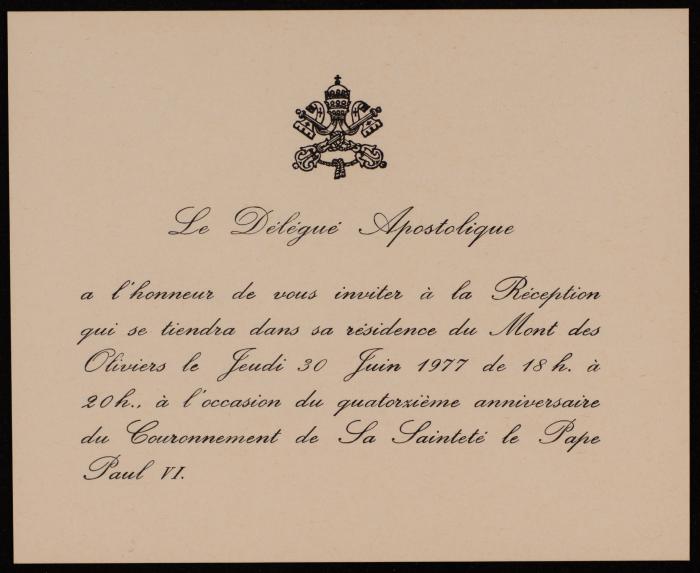 Le Délégué Apostolique
a l'honneur de vous inviter à la Réception
qui se tiendra dans sa résidence du Mont des
Oliviers le Jeudi 30 Juin 1977 de 18 h. à
20 h., à l'occasion du quatorzième anniversaire
du Couronnement de Sa Sainteté le Pape
Paul VI.